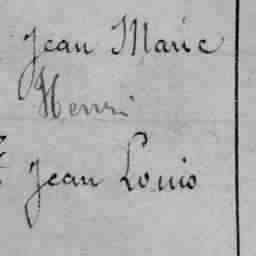 Jean Marie
Henri
Jean Louis